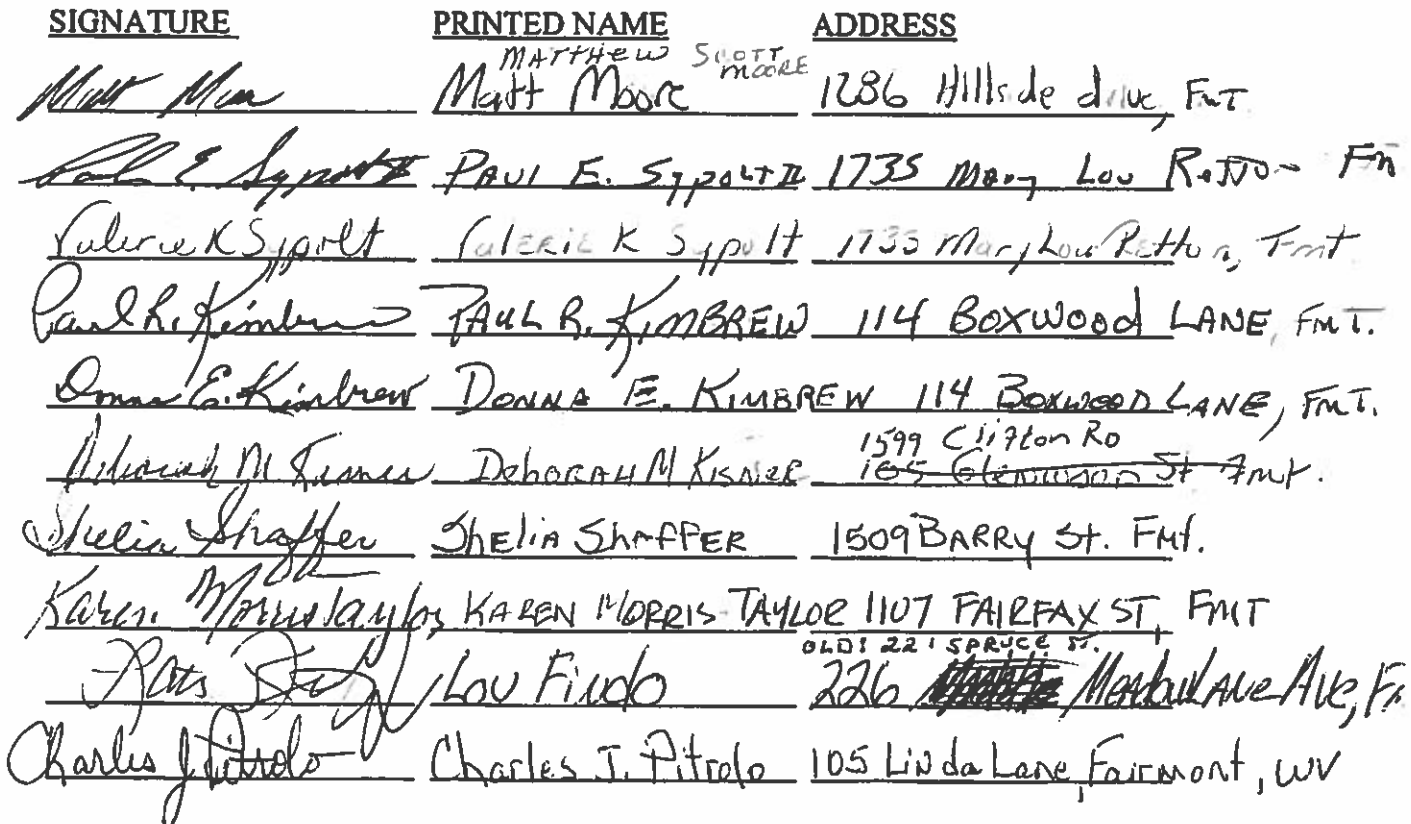 SIGNATURE PRINTED NAME ADDRESS
MATTHEW SCOTT MOORE
Matt Moore 1286 Hillside drive, FMT
Paul E. Sypolt II PAUL E. SYPOLT II 1735 Mary Lou Retton FM
Valerie K Sypolt VALERIE K Sypolt 1735 Mary Lou Retton, Fmt
Paul R. Kimbrew PAUL R. KIMBREW 114 BOXWOOD LANE, FMT.
Donna E. Kimbrew DONNA E. KIMBREW 114 BOXWOOD LANE, FMT.
1599 Clifton RD
Deborah M Kisner DeborAH M KISNER 165 Glenwood St Fmt.
Shelia Shaffer SheliA ShAFFER 1509 BARRY St. FMt.
Karen Morris Taylor KAREN MORRIS-TAYLOR 1107 FAIRFAX ST, FMT
OLD: 221 SPRUCE ST.
Lou 226 MeadowLANE Ave, Fm
Charles J. Pitrolo Charles J. Pitrolo 105 Linda Lane, Fairmont, WV